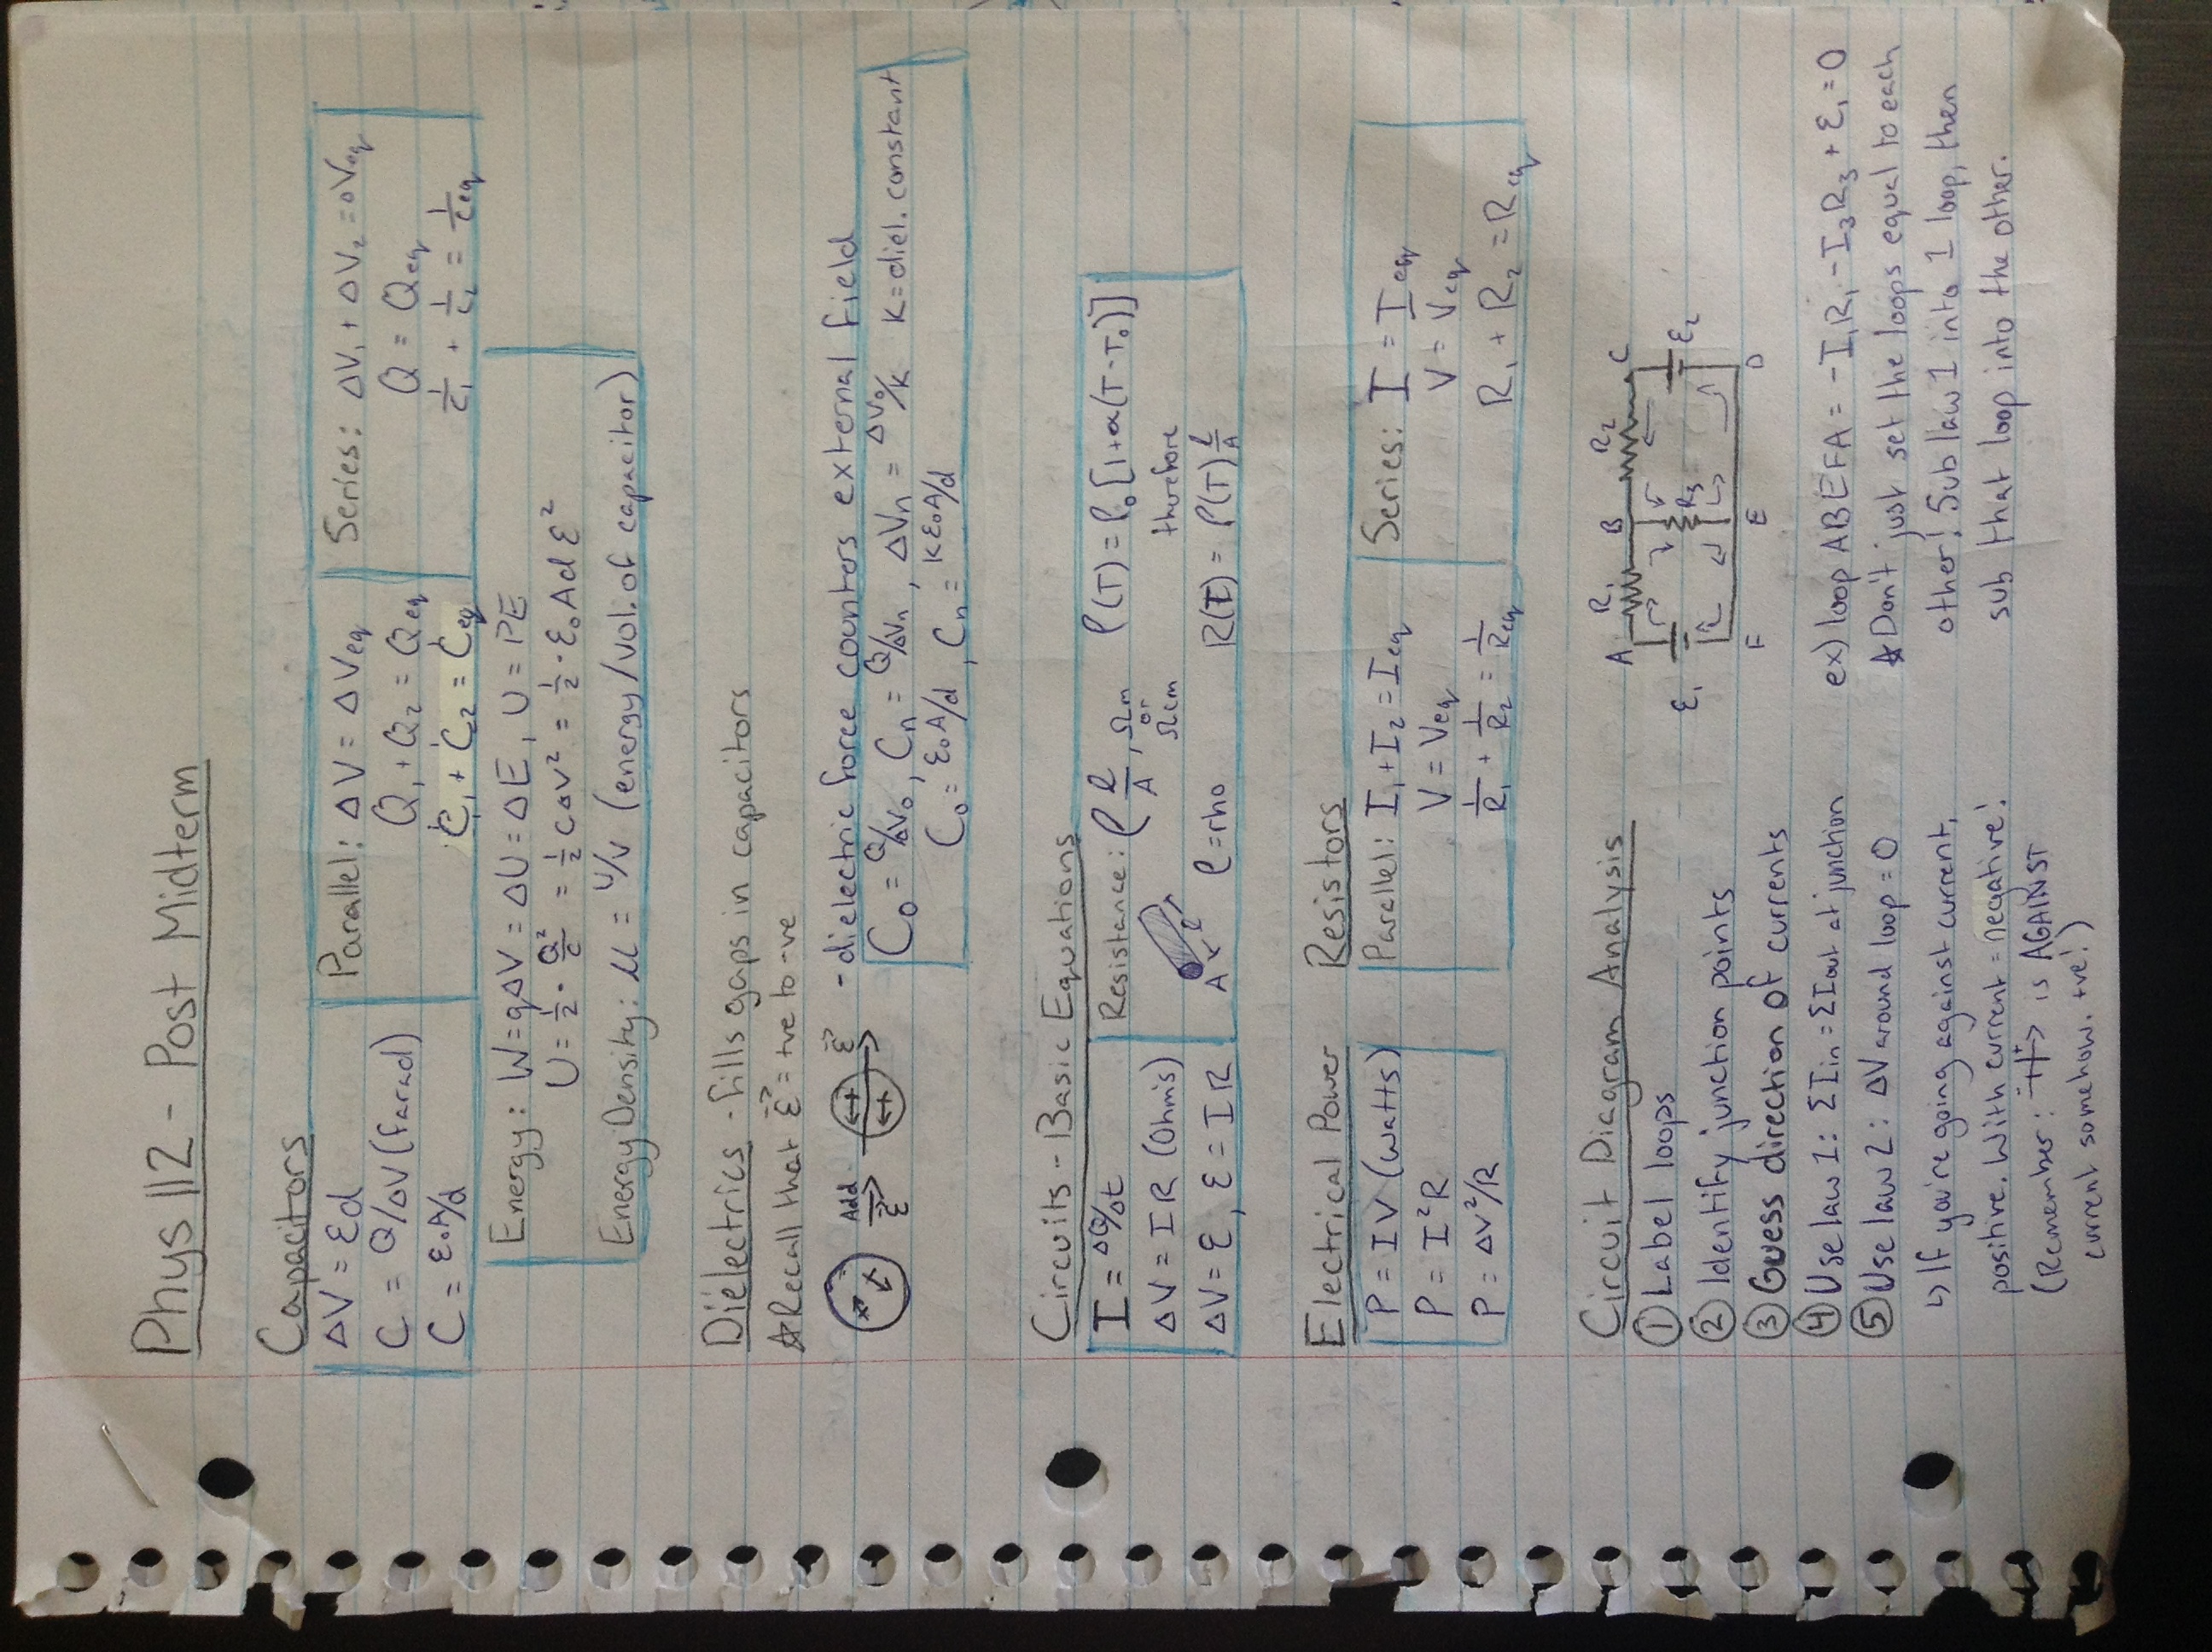 Phys 112 - Post Midterm
Capacitors
ΔV = Ed
C = Q/ΔV (Farad)
C = ε₀A/d
Parallel: ΔV = ΔVeq
Q₁ + Q₂ = Qeq
C₁ + C₂ = Ceq
Series: ΔV₁ + ΔV₂ = ΔVeq
Q = Qeq
1/C₁ + 1/C₂ = 1/Ceq
Energy: W = qΔV = ΔU = ΔE, U = PE
U = 1/2 · Q²/C = 1/2 CΔV² = 1/2 · ε₀ A d ε²
Energy Density: u = U/V (energy/vol. of capacitor)
Dielectrics - fills gaps in capacitors
☆Recall that ε⃗ = +ve to -ve
Add
ε⃗
ε⃗
- dielectric force counters external field
C₀ = Q/ΔV₀, Cn = Q/ΔVn, ΔVn = ΔV₀/K K = diel. constant
C₀ = ε₀A/d, Cn = Kε₀A/d
Circuits - Basic Equations
I = ΔQ/Δt
ΔV = IR (Ohms)
ΔV = ε, ε = IR
Resistance: ρ l/A, Ωm
or
Ωcm
A
l
ρ = rho
ρ(T) = ρ₀[1+α(T-T₀)]
therefore
R(T) = ρ(T) l/A
Electrical Power
P = IV (watts)
P = I²R
P = ΔV²/R
Resistors
Parellel: I₁ + I₂ = Ieq
V = Veq
1/R₁ + 1/R₂ = 1/Req
Series: I = Ieq
V = Veq
R₁ + R₂ = Req
Circuit Diagram Analysis
① Label loops
② Identify junction points
③ Guess direction of currents
④ Use law 1: ΣIin = ΣIout at junction
⑤ Use law 2: ΔV around loop = 0
↳ If you're going against current,
positive. With current = negative!
(Remember: -||+> is AGAINST
current somehow. +ve!)
A R₁ B R₂ C
ε₁ R₃ ε₂
F E D
ex) loop ABEFA = -I₁R₁ - I₃R₃ + ε₁ = 0
☆ Don't just set the loops equal to each
other! Sub law 1 into 1 loop, then
sub that loop into the other.